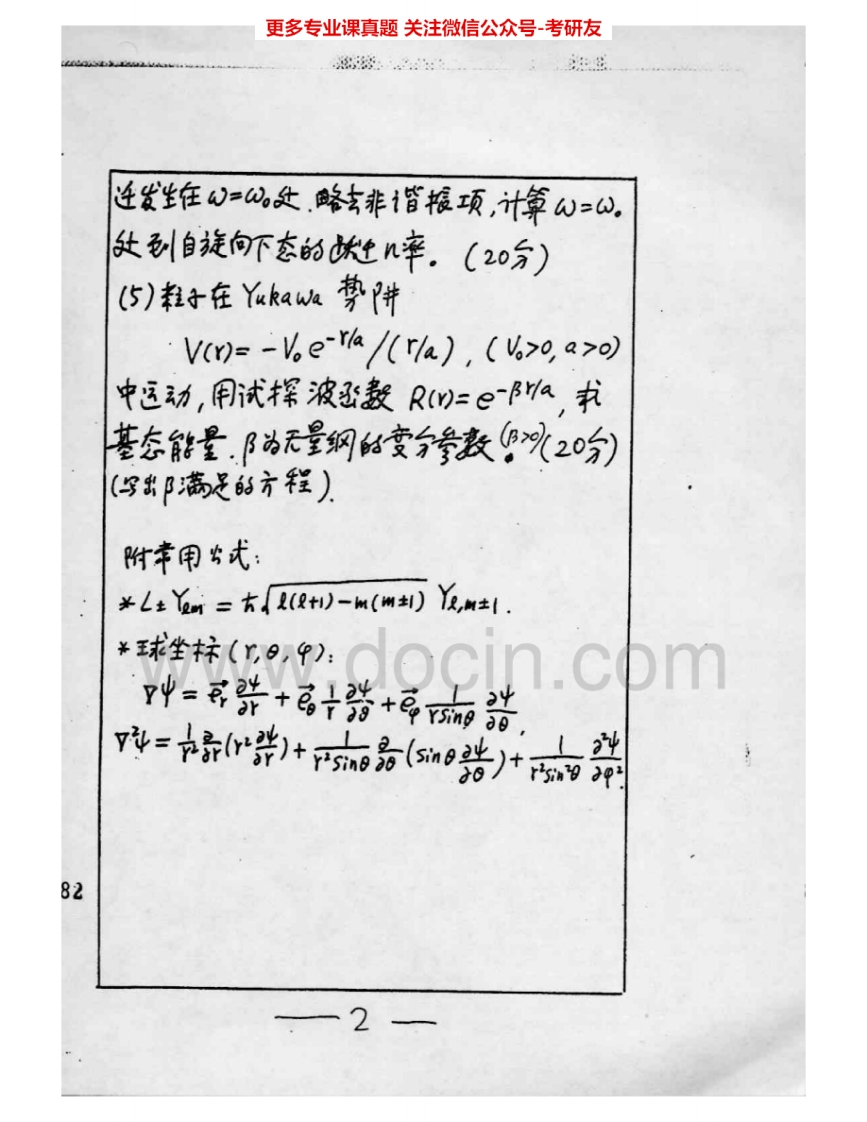 更多专业课真题 关注微信公众号-考研友
迁发生在ω=ω₀处.略去非谐振项,计算ω=ω₀
处到自旋向下态的跃迁几率。(20分)
(5)粒子在Yukawa 势阱
V(r)= -V₀e^{-r/a}/(r/a), (V₀>0, a>0)
中运动,用试探波函数 R(r)=e^{-βr/a},求
基态能量.β为无量纲的变分参数(β>0)。(20分)
(写出β满足的方程).
附常用公式:
*L±Yℓm = ħ√(ℓ(ℓ+1)-m(m±1)) Yℓ,m±1.
*球坐标(r,θ,φ):
∇ψ = e⃗r ∂ψ/∂r + e⃗θ 1/r ∂ψ/∂θ + e⃗φ 1/(r sinθ) ∂ψ/∂θ,
∇²ψ = 1/r² ∂/∂r(r² ∂ψ/∂r) + 1/(r² sinθ) ∂/∂θ(sinθ ∂ψ/∂θ) + 1/(r² sin²θ) ∂²ψ/∂φ².
www.docin.com
82
— 2 —